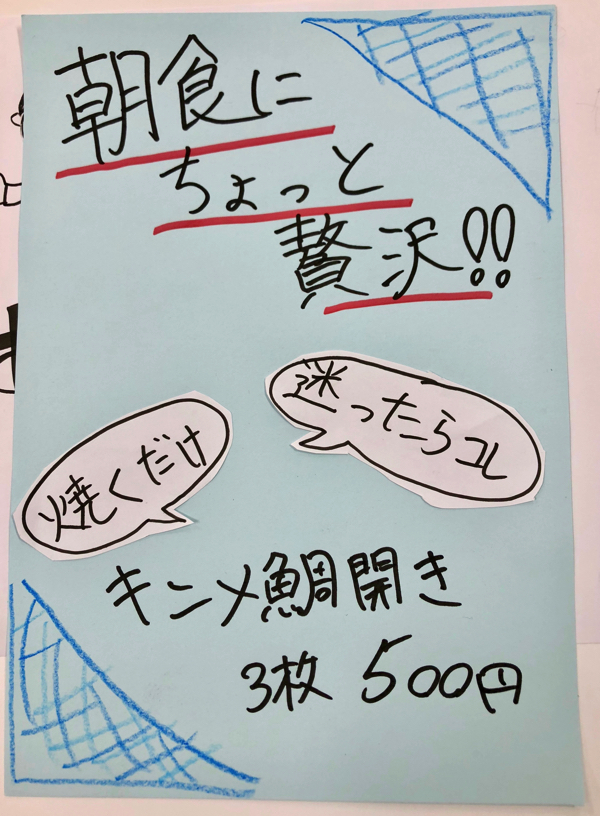 朝食に
ちょっと
贅沢!!
迷ったらコレ
焼くだけ
キンメ鯛開き
3枚 500円